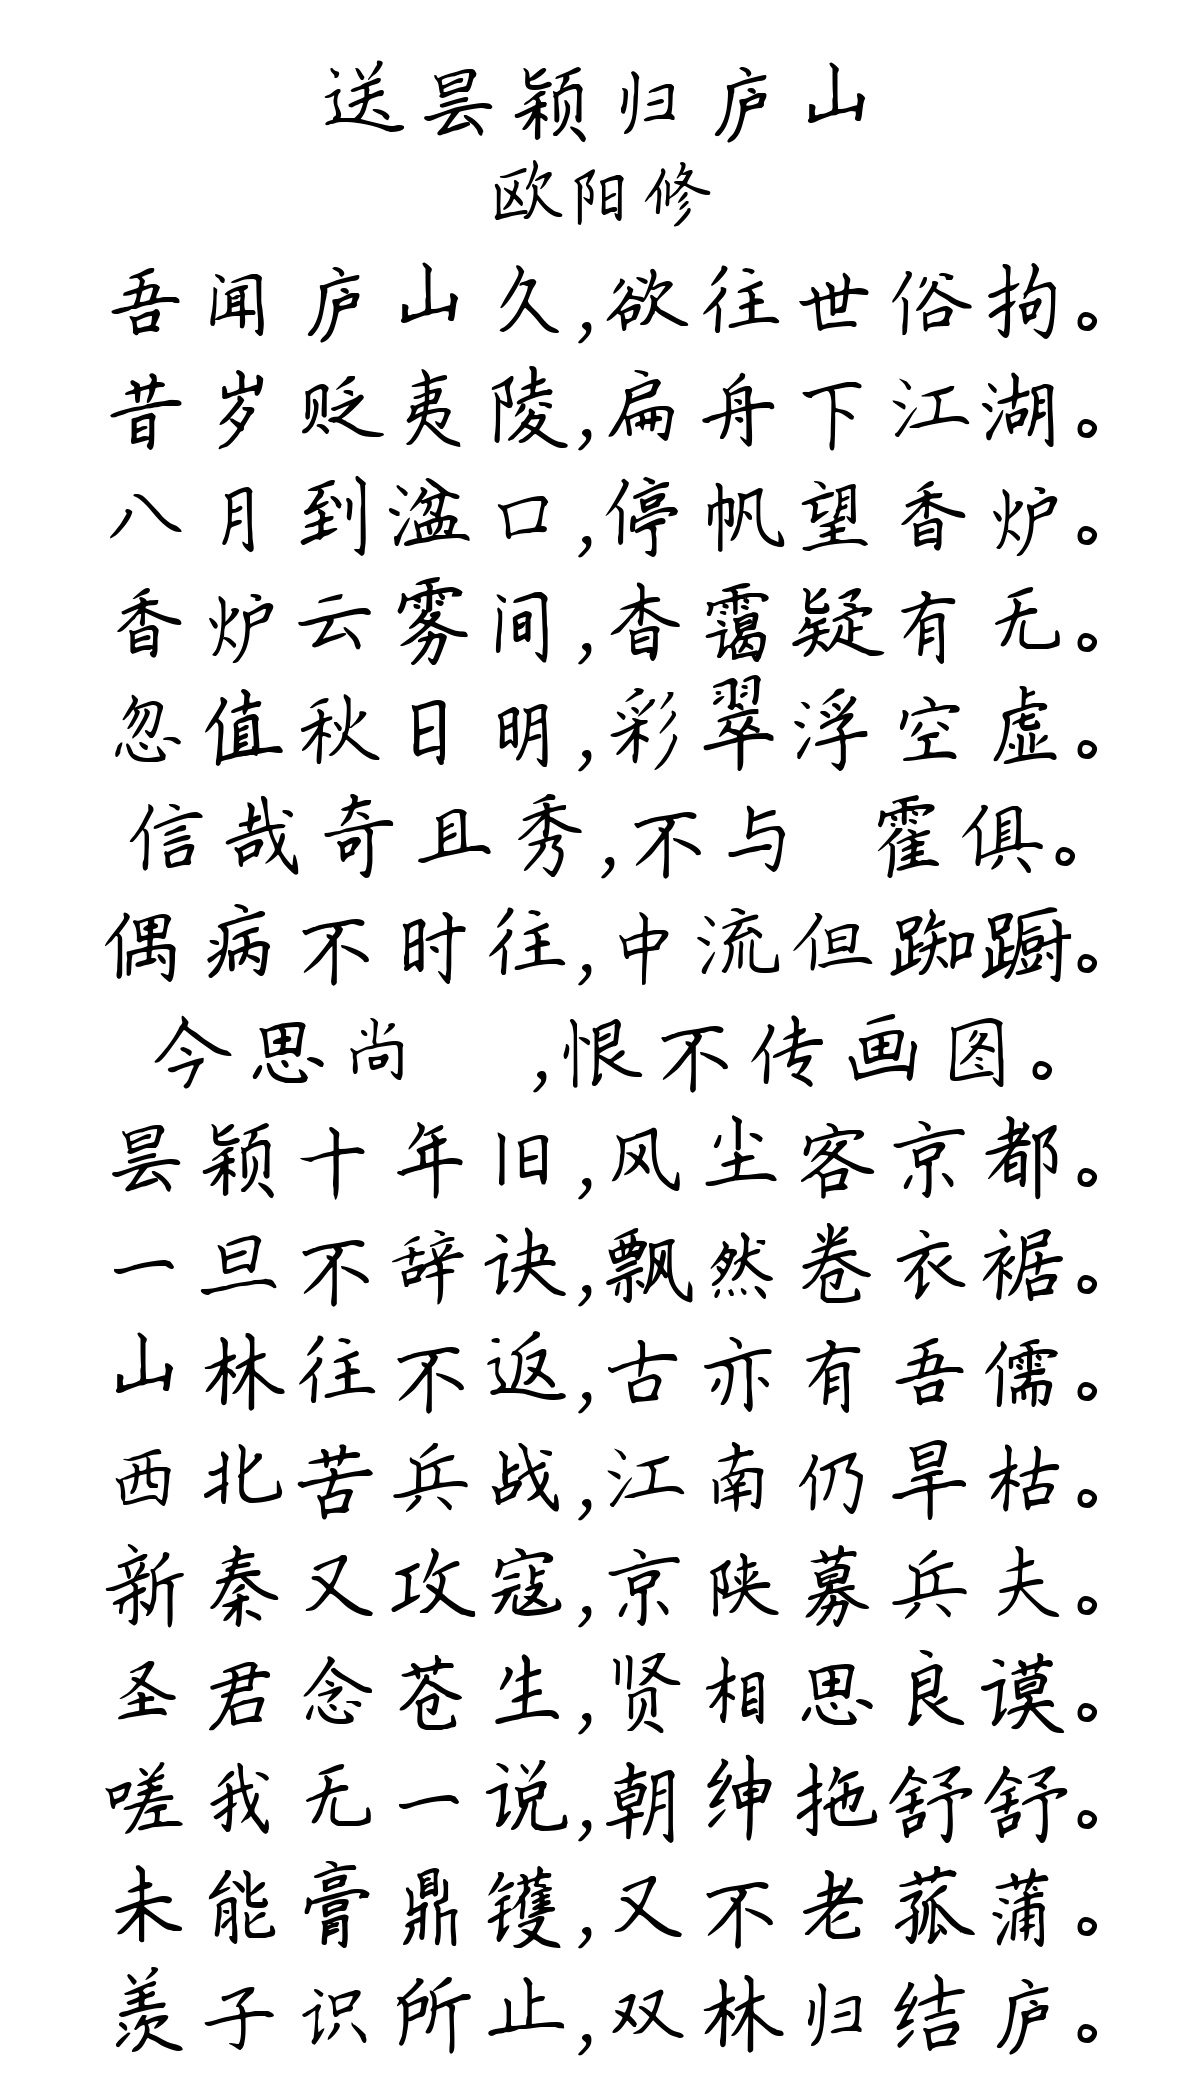 送昙颖归庐山
欧阳修
吾闻庐山久,欲往世俗拘。
昔岁贬夷陵,扁舟下江湖。
八月到湓口,停帆望香炉。
香炉云雾间,杳霭疑有无。
忽值秋日明,彩翠浮空虚。
信哉奇且秀,不与 霍俱。
偶病不时往,中流但踟蹰。
今思尚 ,恨不传画图。
昙颖十年旧,风尘客京都。
一旦不辞诀,飘然卷衣裾。
山林往不返,古亦有吾儒。
西北苦兵战,江南仍旱枯。
新秦又攻寇,京陕募兵夫。
圣君念苍生,贤相思良谟。
嗟我无一说,朝绅拖舒舒。
未能膏鼎镬,又不老菰蒲。
羡子识所止,双林归结庐。